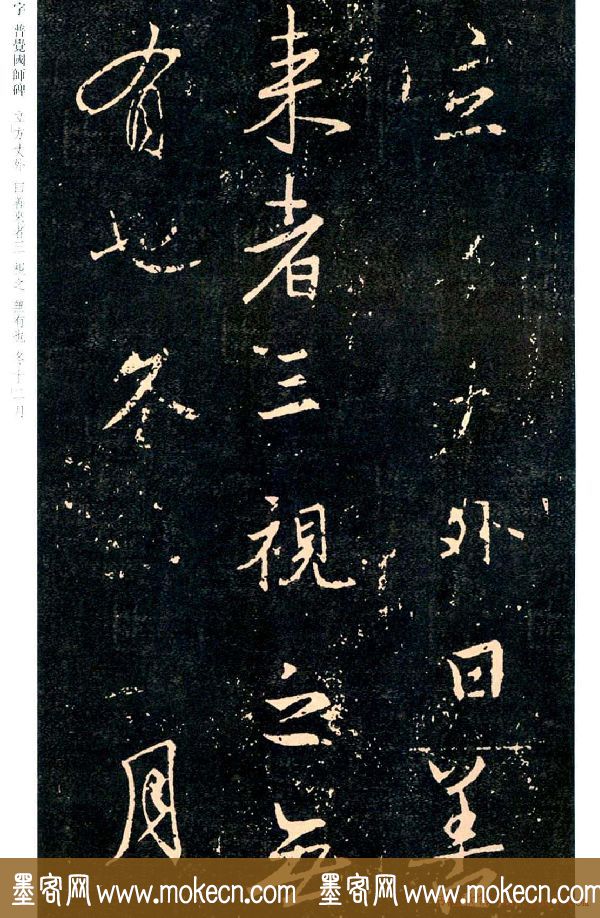 立方丈外曰善
来者三視之無
有也冬十二月
字 普覺國師碑 立方丈外 曰善來者三 視之 無有也 冬十二月
墨客网 www.mokecn.com 墨客网 www.mokecn.com